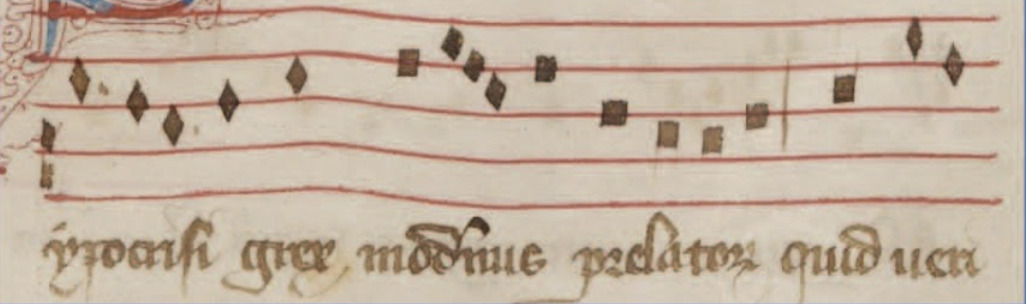 ypocrisi grex mod̄nus prelatoꝝ quid ueri